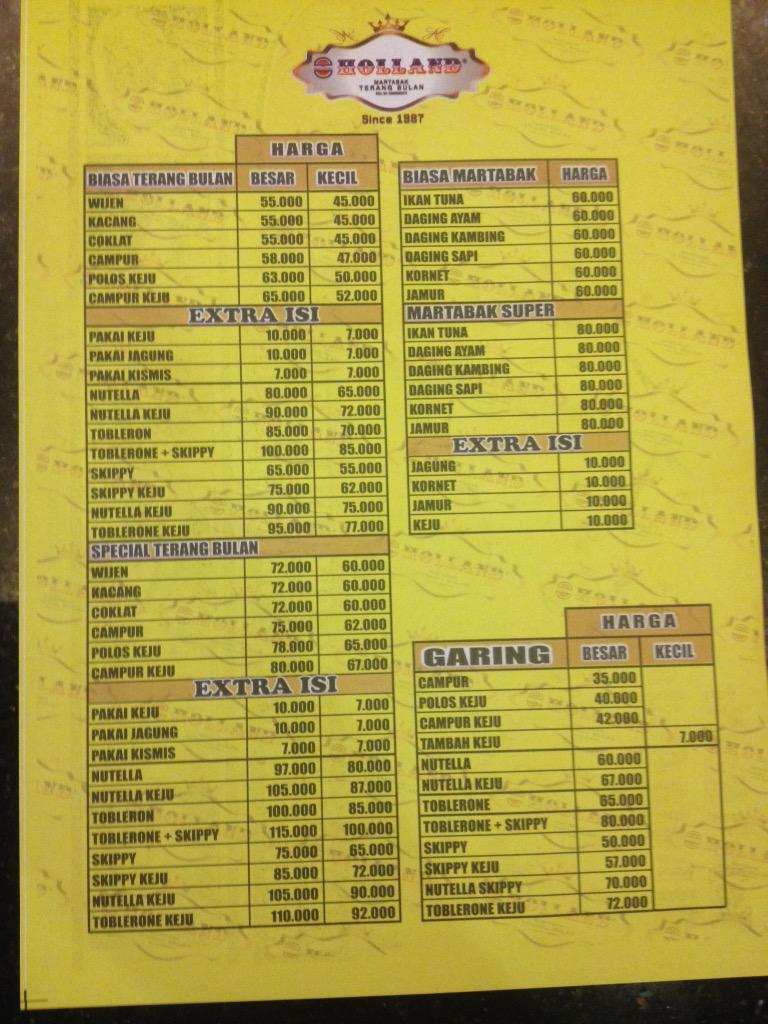 HOLLAND
MARTABAK
TERANG BULAN
Since 1987
HARGA
BIASA TERANG BULAN BESAR KECIL
WIJEN 55.000 45.000
KACANG 55.000 45.000
COKLAT 55.000 45.000
CAMPUR 58.000 47.000
POLOS KEJU 63.000 50.000
CAMPUR KEJU 65.000 52.000
EXTRA ISI
PAKAI KEJU 10.000 7.000
PAKAI JAGUNG 10.000 7.000
PAKAI KISMIS 7.000 7.000
NUTELLA 80.000 65.000
NUTELLA KEJU 90.000 72.000
TOBLERON 85.000 70.000
TOBLERONE + SKIPPY 100.000 85.000
SKIPPY 65.000 55.000
SKIPPY KEJU 75.000 62.000
NUTELLA KEJU 90.000 75.000
TOBLERONE KEJU 95.000 77.000
SPECIAL TERANG BULAN
WIJEN 72.000 60.000
KACANG 72.000 60.000
COKLAT 72.000 60.000
CAMPUR 75.000 62.000
POLOS KEJU 78.000 65.000
CAMPUR KEJU 80.000 67.000
EXTRA ISI
PAKAI KEJU 10.000 7.000
PAKAI JAGUNG 10.000 7.000
PAKAI KISMIS 7.000 7.000
NUTELLA 97.000 80.000
NUTELLA KEJU 105.000 87.000
TOBLERON 100.000 85.000
TOBLERONE + SKIPPY 115.000 100.000
SKIPPY 75.000 65.000
SKIPPY KEJU 85.000 72.000
NUTELLA KEJU 105.000 90.000
TOBLERONE KEJU 110.000 92.000
BIASA MARTABAK HARGA
IKAN TUNA 60.000
DAGING AYAM 60.000
DAGING KAMBING 60.000
DAGING SAPI 60.000
KORNET 60.000
JAMUR 60.000
MARTABAK SUPER
IKAN TUNA 80.000
DAGING AYAM 80.000
DAGING KAMBING 80.000
DAGING SAPI 80.000
KORNET 80.000
JAMUR 80.000
EXTRA ISI
JAGUNG 10.000
KORNET 10.000
JAMUR 10.000
KEJU 10.000
HARGA
GARING BESAR KECIL
CAMPUR 35.000
POLOS KEJU 40.000
CAMPUR KEJU 42.000
TAMBAH KEJU 7.000
NUTELLA 60.000
NUTELLA KEJU 67.000
TOBLERONE 65.000
TOBLERONE + SKIPPY 80.000
SKIPPY 50.000
SKIPPY KEJU 57.000
NUTELLA SKIPPY 70.000
TOBLERONE KEJU 72.000